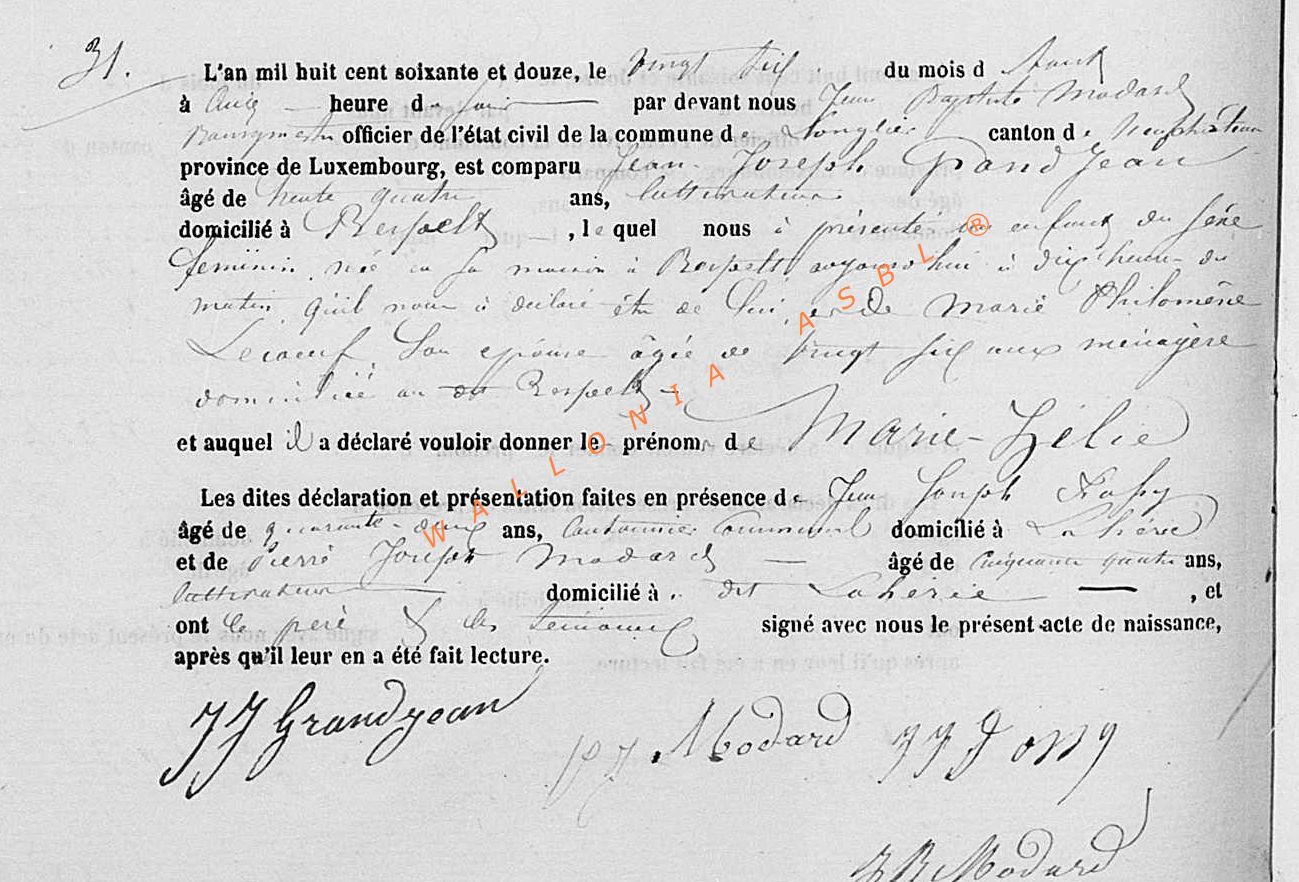 31.
L'an mil huit cent soixante et douze, le vingt six du mois d'Aout
à cinq heure du soir par devant nous Jean Baptiste Modard
Bourgmestre officier de l'état civil de la commune de Longlier canton de Neufchâteau
province de Luxembourg, est comparu Jean-Joseph Grandjean
âgé de trente quatre ans, cultivateur
domicilié à Respelt, lequel nous à présenté un enfant du séxe
feminin née en sa maison à Respelt aujourd'hui à dix heures du
matin, qu'il nous à déclaré être de lui, et de Marie Philomène
Lecoeuf, son épouse âgée de vingt six ans ménagère
domiciliée au dit Respelt
et auquel il a déclaré vouloir donner le prénoms de Marie-Zélie
Les dites déclaration et présentation faites en présence de Jean Joseph
âgé de quarante-deux ans, Cantonnier Communal domicilié à Lahérie
et de Pierre Joseph Modard âgé de Cinquante quatre ans,
Cultivateur domicilié à dit Laherie, et
ont le père & les témoins signé avec nous le présent acte de naissance,
après qu'il leur en a été fait lecture.
JJ Grandjean PJ. Modard JJ
JB Modard
WALLONIA ASBL ®